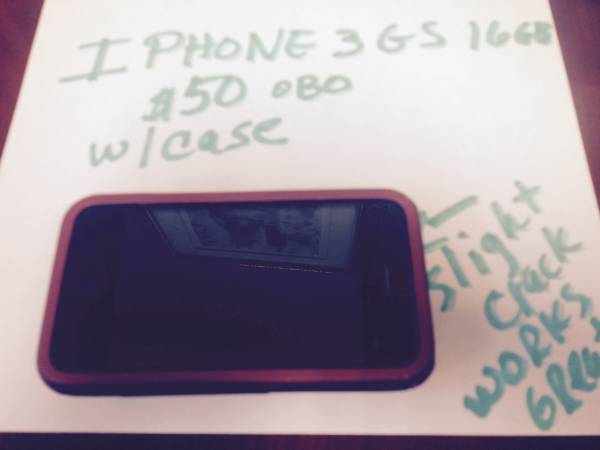 I PHONE 3GS 16GB
$50 OBO
w/case
slight
crack
WORKS
GREAT